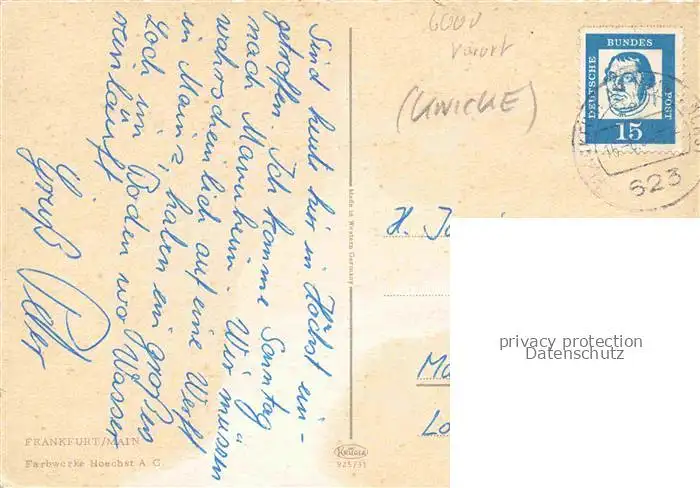 Sind heute hir in Höchst ein-
getroffen. Ich komme Sonntag
nach Mannheim. Wir müssen
wahrscheinlich auf eine Werft
in Mainz haben ein großes
Loch im Boden wo Wasser
reinläuft
Gruß Peter
6000
Vorort
(KWICKE)
DEUTSCHE BUNDES POST
15
623
H. J
Ma
Lo
Made in Western Germany
FRANKFURT/MAIN
Farbwerke Hoechst A. G.
KRÜGER
925/31
privacy protection
Datenschutz